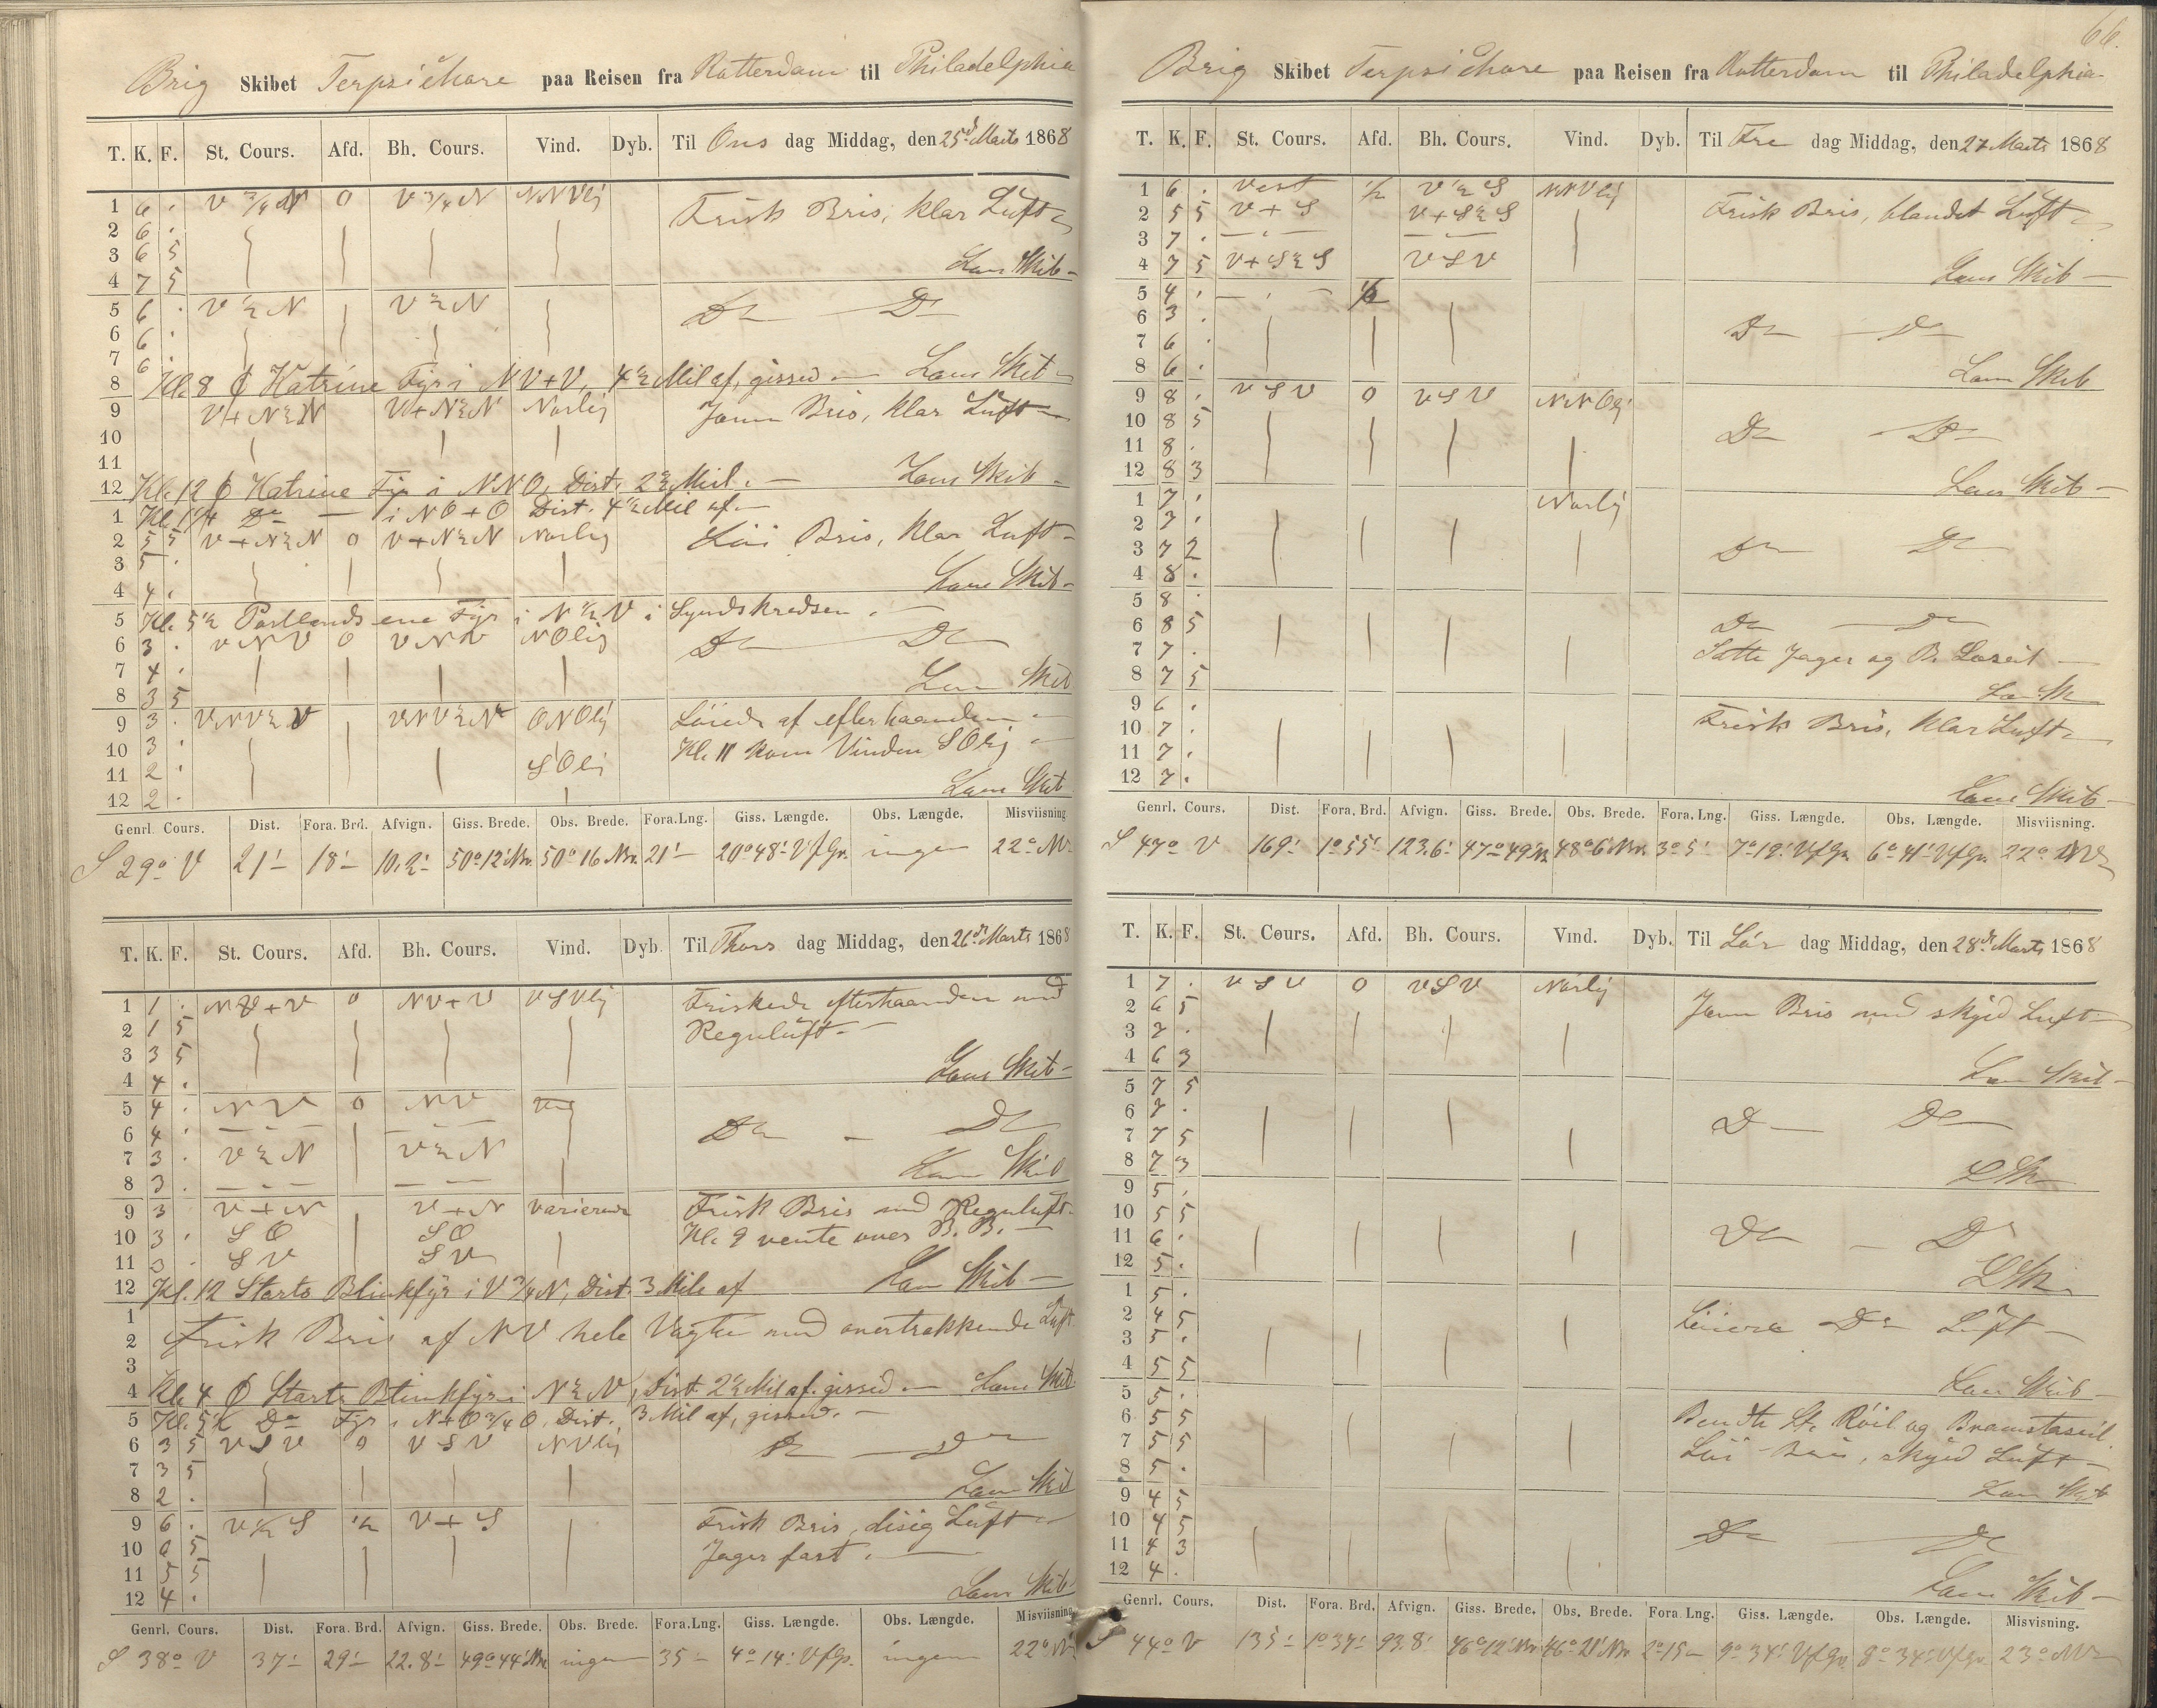 Brig Skibet Terpsichore paa Reisen fra Rotterdam til Philadelphia
T. K. F. St. Cours. Afd. Bh. Cours. Vind. Dyb. Til Ons dag Middag, den 25d Marts 1868
1 6 . V 3/4 N 0 V 3/4 N NNVlig Frisk Bris, klar Luft
2 6 .
3 6 5 Lens Skib
4 7 5
5 6 . V ½ N V ½ N Do Do
6 6 .
7 6 .
8 Kl. 8 Katrine Fyr i NV+V, 4½ Mil af, gissed Lens Skib
9 V+N½N V+N½N Norlig Jevn Bris, klar Luft
10
11
12 Kl. 12 Katrine Fyr i NNO, Dist. 2½ Mil. Lens Skib
1 Kl. 1¼ Do i NO+O Dist. 4½ Mil af
2 5 5 V+N½N 0 V+N½N Norlig Löi Bris, klar Luft
3 5 .
4 4 . Lens Skib
5 Kl. 5½ Portlands ene Fyr i N½V i Synskredsen
6 3 . VNV 0 VNV NOlig Do Do
7 4 .
8 3 5 Lens Skib
9 3 . VNV½V VNV½V ONOlig Löiede af efterhaanden
10 3 . Kl. 11 kom Vinden SOlig
11 2 . SOlig
12 2 . Lens Skib
Genrl. Cours. Dist. Fora. Brd. Afvign. Giss. Brede. Obs. Brede. Fora. Lng. Giss. Længde. Obs. Længde. Misviisning
S 29° V 21' 18' 10.2' 50° 12' Nr. 50° 16 Nr. 21' 20° 48' VfGr. ingen 22° NV
T. K. F. St. Cours. Afd. Bh. Cours. Vind. Dyb. Til Thors dag Middag, den 26d Marts 1868
1 1 . NV+V 0 NV+V VSVlig Friskede efterhaanden med
2 1 5 Regnluft
3 3 5
4 4 . Lens Skib
5 4 . NV 0 NV
6 4 . Do Do
7 3 . V½N V½N
8 3 . Lens Skib
9 3 V+N V+N varierende Frisk Bris med Regnluft
10 3 . SO SO Kl. 9 vente over B.B.
11 3 . SV SV
12 Kl. 12 Starts Blinkfyr i V 3/4 N, Dist. 3 Mile af Lens Skib
1
2 Frisk Bris af NV hele Vagten med overtrækkende Luft
3
4 Kl. 4 Starts Blinkfyr i N½V, Dist. 2½ Mil af, gissed Lens Skib
5 Kl. 5½ Do Fyr i N+O 3/4 O. Dist. 3 Mil af, gissed.
6 3 5 VSV 0 VSV NVlig Do Do
7 3 5
8 2 . Lens Skib
9 6 . V½S ½ V+S Frisk Bris, disig Luft
10 6 5 Jager fast.
11 5 5
12 4 . Lens Skib
Genrl. Cours. Dist. Fora. Brd. Afvign. Giss. Brede. Obs. Brede. Fora. Lng. Giss. Længde. Obs. Længde. Misviisning
S 38° V 37' 29' 22.8' 49° 44' Nr. ingen 35 4° 14' VfGr. ingen 22° NV
66.
Brig Skibet Terpsichore paa Reisen fra Rotterdam til Philadelphia
T. K. F. St. Cours. Afd. Bh. Cours. Vind. Dyb. Til Fre dag Middag, den 27 Marts 1868
1 6 . Vest ½ V½S NNVlig
2 5 5 V+S V+S½S Frisk Bris, blandet Luft
3 7 .
4 7 5 V+S½S VSV Lens Skib
5 4 . ½
6 3 . Do Do
7 6 .
8 6 . Lens Skib
9 8 . VSV 0 VSV NNOlig
10 8 5 Do Do
11 8 .
12 8 3 Lens Skib
1 7 . Norlig
2 7 .
3 7 2 Do Do
4 8 .
5 8 .
6 8 5 Do Do
7 7 . Satte Jager og B. Læseil
8 7 5 L Sk
9 6 .
10 7 . Frisk Bris, klar Luft
11 7 .
12 7 . Lens Skib
Genrl. Cours. Dist. Fora. Brd. Afvign. Giss. Brede. Obs. Brede. Fora. Lng. Giss. Længde. Obs. Længde. Misviisning.
S 47° V 169' 1° 55' 123.6' 47° 49' Nr. 48° 6' Nr. 3° 5' 7° 19' VfGr. 6° 41' VfGr. 22° NV
T. K. F. St. Cours. Afd. Bh. Cours. Vind. Dyb. Til Lör dag Middag, den 28d Marts 1868
1 7 . VSV 0 VSV Norlig
2 6 5 Jevn Bris med skyed Luft
3 7 .
4 6 3 Lens Skib
5 7 5
6 7 . Do Do
7 7 5
8 7 3 L Sk
9 5 .
10 5 5 Do Do
11 6 .
12 5 . L Sk
1 5 .
2 4 5 Löiere Do Luft
3 5 .
4 5 5 Lens Skib
5 5 .
6 5 5 Bendte St. Röil og Bramstagseil.
7 5 5 Löi Bris, skyed Luft
8 5 .
9 4 5 Lens Skib
10 4 5 Do Do
11 4 3
12 4 . Lens Skib
Genrl. Cours. Dist. Fora. Brd. Afvign. Giss. Brede. Obs. Brede. Fora. Lng. Giss. Længde. Obs. Længde. Misvisning.
S 44° V 135' 1° 37' 93.8' 46° 12' Nr. 46° 21' Nr. 2° 15 9° 34' VfGr. 8° 34' VfGr. 23° NV